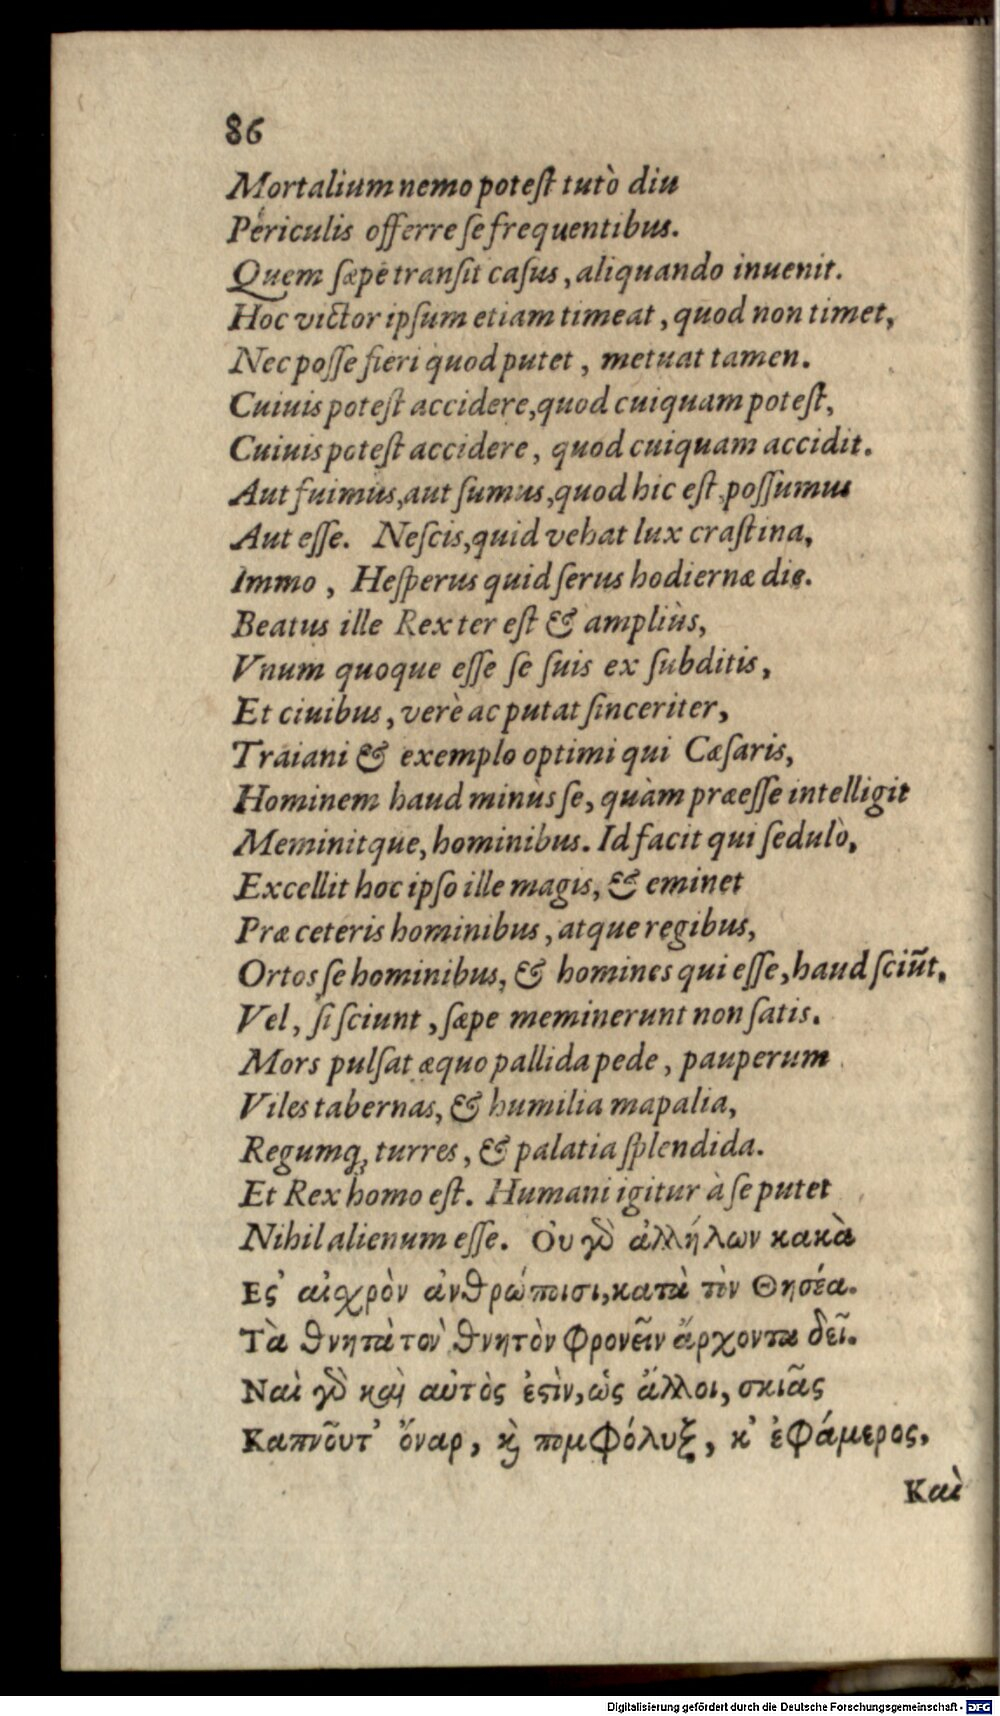 86
Mortalium nemo potest tutò diu
Periculis offerre se frequentibus.
Quem sæpe transit casus, aliquando inuenit.
Hoc victor ipsum etiam timeat, quod non timet,
Nec posse fieri quod putet, metuat tamen.
Cuiuis potest accidere, quod cuiquam potest,
Cuiuis potest accidere, quod cuiquam accidit.
Aut fuimus, aut sumus, quod hic est, possumus
Aut esse. Nescis, quid vehat lux crastina,
Immo, Hesperus quid serus hodiernæ die.
Beatus ille Rex ter est & ampliùs,
Vnum quoque esse se suis ex subditis,
Et ciuibus, verè ac putat sinceriter,
Traiani & exemplo optimi qui Cæsaris,
Hominem haud minùs se, quàm præesse intelligit
Meminitque, hominibus. Id facit qui sedulò,
Excellit hoc ipso ille magis, & eminet
Præ ceteris hominibus, atque regibus,
Ortos se hominibus, & homines qui esse, haud sciũt,
Vel, si sciunt, sæpe meminerunt non satis.
Mors pulsat æquo pallida pede, pauperum
Viles tabernas, & humilia mapalia,
Regumq; turres, & palatia splendida.
Et Rex homo est. Humani igitur à se putet
Nihil alienum esse. Ου γὸ ἀλλήλων κακὰ
Ες' αἰχρὸν ἀνθρώποισι, κατὰ τὸν Θησέα.
Τὰ θνητὰ τὸν θνητὸν φρονεῖν ἄρχοντα δεῖ.
Ναὶ γὸ καὶ αὐτὸς ἐςὶν, ὡς ἄλλοι, σκιᾶς
Καπνοῦτ' ὄναρ, κ̀ πομφόλυξ, κ' ἐφάμερος,
Καὶ
Digitalisierung gefördert durch die Deutsche Forschungsgemeinschaft - DFG